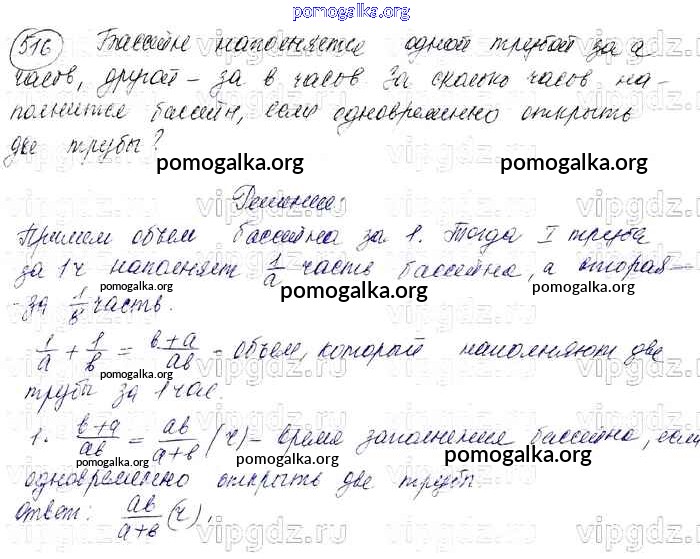 pomogalka.org
516 Бассейн наполняется одной трубой за a
часов, другой – за в часов За сколько часов на-
полнится бассейн, если одновременно открыть
две трубы?
pomogalka.org pomogalka.org
Решение:
Примем объем бассейна за 1. Тогда I труба
за 1ч наполняет 1/a часть бассейна, а вторая –
pomogalka.org
- за 1/в часть.
pomogalka.org
1/a + 1/в = в+a/aв – объем, который наполняют две
pomogalka.org pomogalka.org
трубы за 1 час.
1. в+a/aв = aв/a+в (ч) – время заполнения бассейна, если
pomogalka.org pomogalka.org pomogalka.org
одновременно открыть две трубы.
Ответ: aв/a+в (ч).
vipgdz.ru